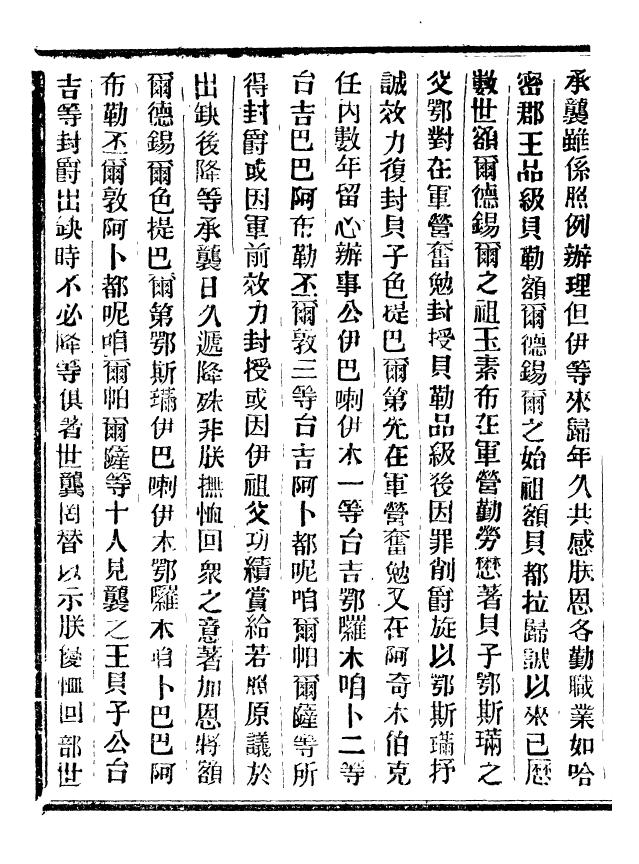 承襲雖係照例辦理但伊等來歸年久共感朕恩各勤職業如哈
密郡王品級貝勒額爾德錫爾之始祖額貝都拉歸誠以來已歷
數世額爾德錫爾之祖玉素布在軍營勤勞懋著貝子鄂斯璊之
父鄂對在軍營奮勉封授貝勒品級後因罪削爵旋以鄂斯璊抒
誠效力復封貝子色提巴爾第先在軍營奮勉又在阿奇木伯克
任內數年留心辦事公伊巴喇伊木一等台吉鄂囉木咱卜二等
台吉巴巴阿布勒丕爾敦三等台吉阿卜都呢咱爾帕爾薩等所
得封爵或因軍前效力封授或因伊祖父功績賞給若照原議於
出缺後降等承襲日久遞降殊非朕撫恤回衆之意著加恩將額
爾德錫爾色提巴爾第鄂斯璊伊巴喇伊木鄂囉木咱卜巴巴阿
布勒丕爾敦阿卜都呢咱爾帕爾薩等十人見襲之王貝子公台
吉等封爵出缺時不必降等俱著世襲罔替以示朕優恤回部世